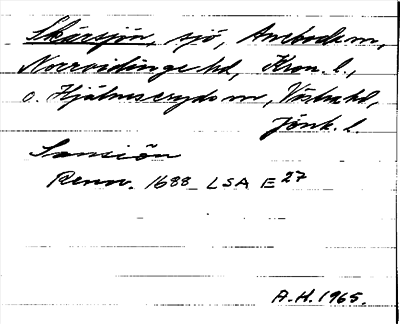 Skärsjön, sjö, Aneboda sn,
Norrvidinge hd, Kron. l.,
o. Hjälmseryds sn, Västra hd,
Jönk. l.
Renov. 1688 LSA E 27
A.H. 1965.